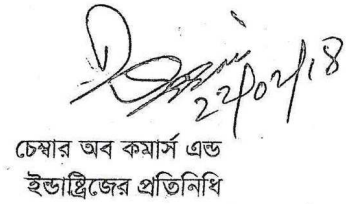 22/02/18
চেম্বার অব কমার্স এন্ড
ইন্ডাষ্ট্রিজের প্রতিনিধি